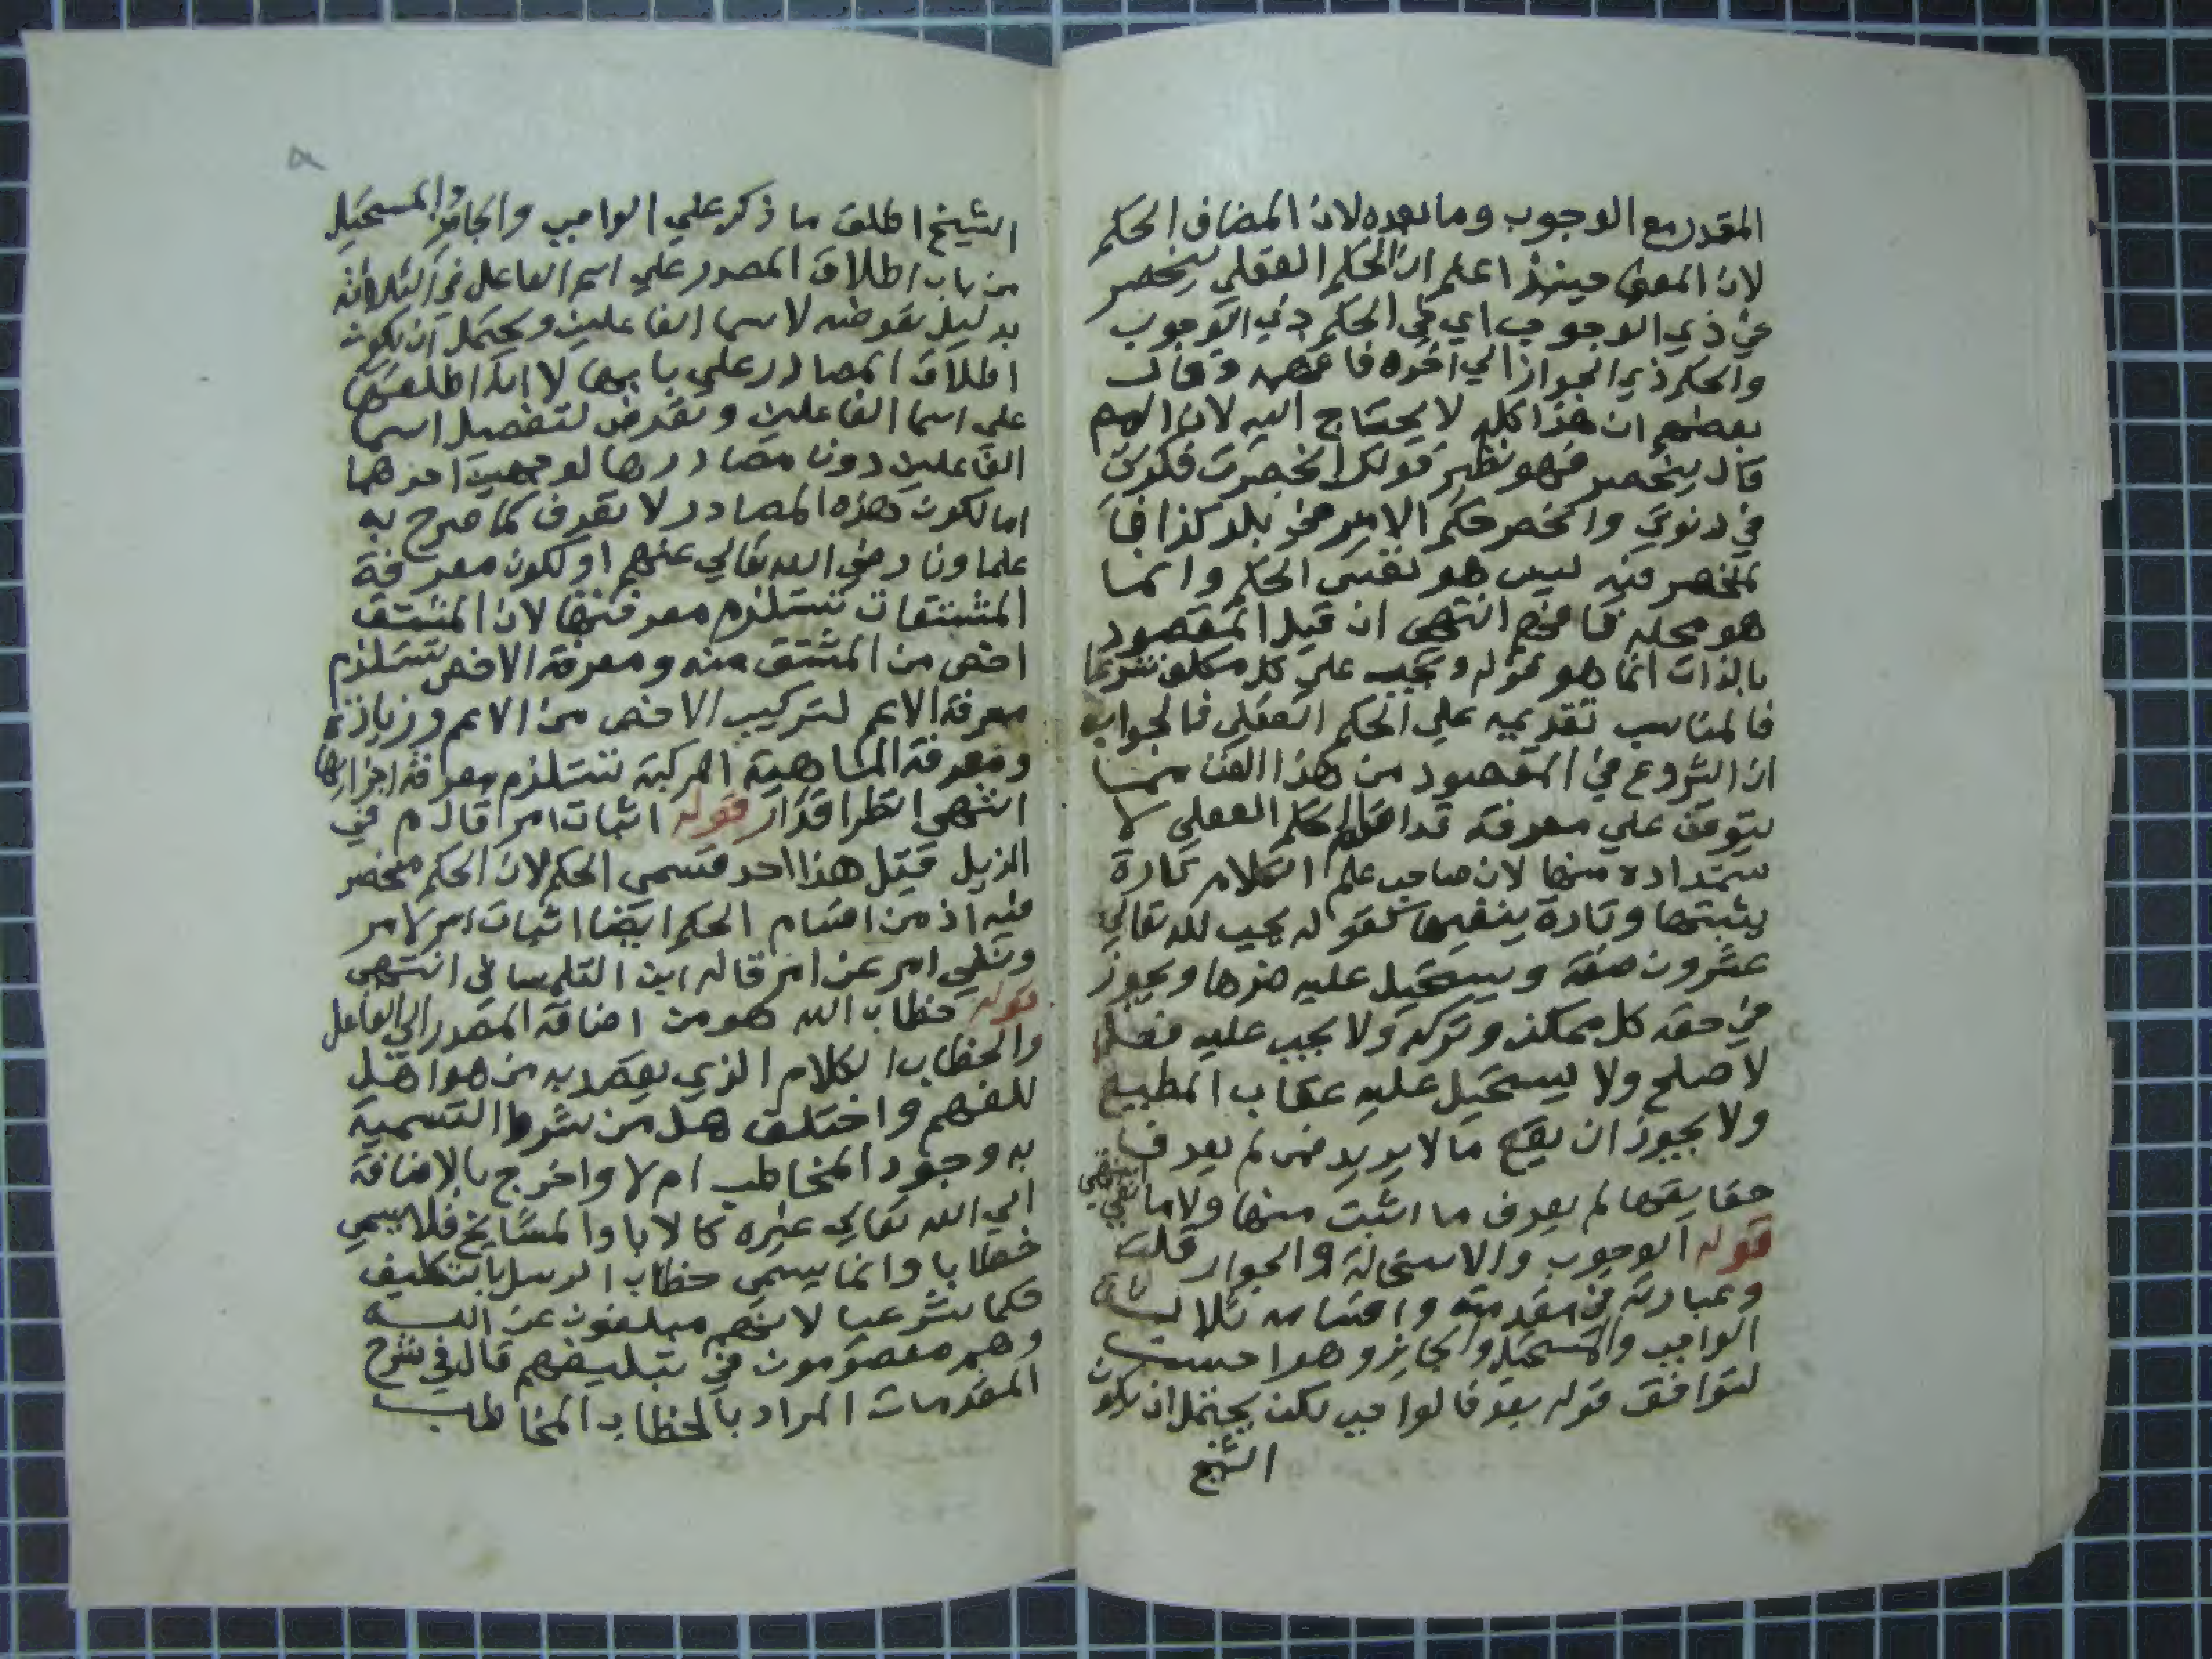 المقدر مع الوجوب وما بعده لان المضاف الحكم
لان المعنى حينئذ اعلم ان الحكم العقلي ينحصر
في ذي الوجوب اي في الحكم ذي الوجوب
والحكم ذي الجواز الي اخره فافهمه وقال
بعضهم ان هذا كله لا يحتاج اليه لان
قال ينحصر فهو نظير قولك انحصرت فكوتي
في دنوتي وانحصر حكم الامير في بلد كذا فما
انحصر فيه ليس هو نفس الحكم وانما
هو محله فافهم انتهى ان قيل المقصود
بالذات انما هو قوله ويجب على كل مكلف شرعا
فالمناسب تقديمه علي الحكم العقلي فالجواب
ان الشروع في المقصود من هذا الفن مما
يتوقف علي معرفة الحكم العقلي لا
ستمداده منها لان صاحب علم الكلام تارة
يثبتها وتارة ينفيها كقوله يجب لله تعالي
عشرون صفة ويستحيل عليه ضدها ويجوز
في حقه كل ممكن وتركه ولا يجب عليه فعل
لا صلح ولا يستحيل عليه عقاب المطيع
ولا يجوز ان يقع ما لا يريد فمن لم يعرف
حقايقها لم يعرف ما اثبت منها ولا ما نفي انتهى
قوله الوجوب والاستحالة والجواز قلت
وعبارته في مقدمته واقسامه ثلاثة
الواجب والمستحيل والجايز وهو احسن
لتوافق قوله بعد فالواجب لكن يحتمل ان يكون
الشيخ
الشيخ اطلق ما ذكر علي الواجب والجايز والمستحيل
من باب اطلاق المصدر علي اسم الفاعل في الثلاثة
بدليل تعرضه لاسما الفاعلين ويحتمل ان يكون
اطلاق المصادر علي بابها لا انه اطلقها
علي اسما الفاعلين وتعرض لتفصيل اسما
الفاعلين دون مصادرها لوجهين احدهما
اما لكون هذه المصادر لا تعرف كما صرح به
علماونا رضي الله تعالي عنهم او لكون معرفة
المشتقات تستلزم معرفتها لان المشتق
اخص من المشتق منه ومعرفة الاخص تستلزم
معرفة الاعم لتركيب الاخص من الاعم وزيادة
ومعرفة الماهية المركبة تستلزم معرفة اجزايها
انتهى قوله اثبات امر قال م في
الذيل قيل هذا احد قسمي الحكم لان الحكم منحصر
فيه اذ من اقسام الحكم ايضا اثبات امر لامر
ونفي امر عن امر قاله ابن التلمساني انتهى
قوله خطاب الله هو من اضافة المصدر الي الفاعل
والخطاب الكلام الذي يقصد به من هو اهل
للفهم واختلف هل من شرط التسمية
به وجود المخاطب ام لا واخرج بالاضافة
الي الله تعالي غيره كالابا والمشايخ فلا يسمي
خطابا وانما يسمى خطاب الرسل بالتكليف
حكما شرعيا لانهم مبلغون عن الله
وهم معصومون في تبليغهم قال في شرح
المقدمات المراد بالخطاب المخاطب